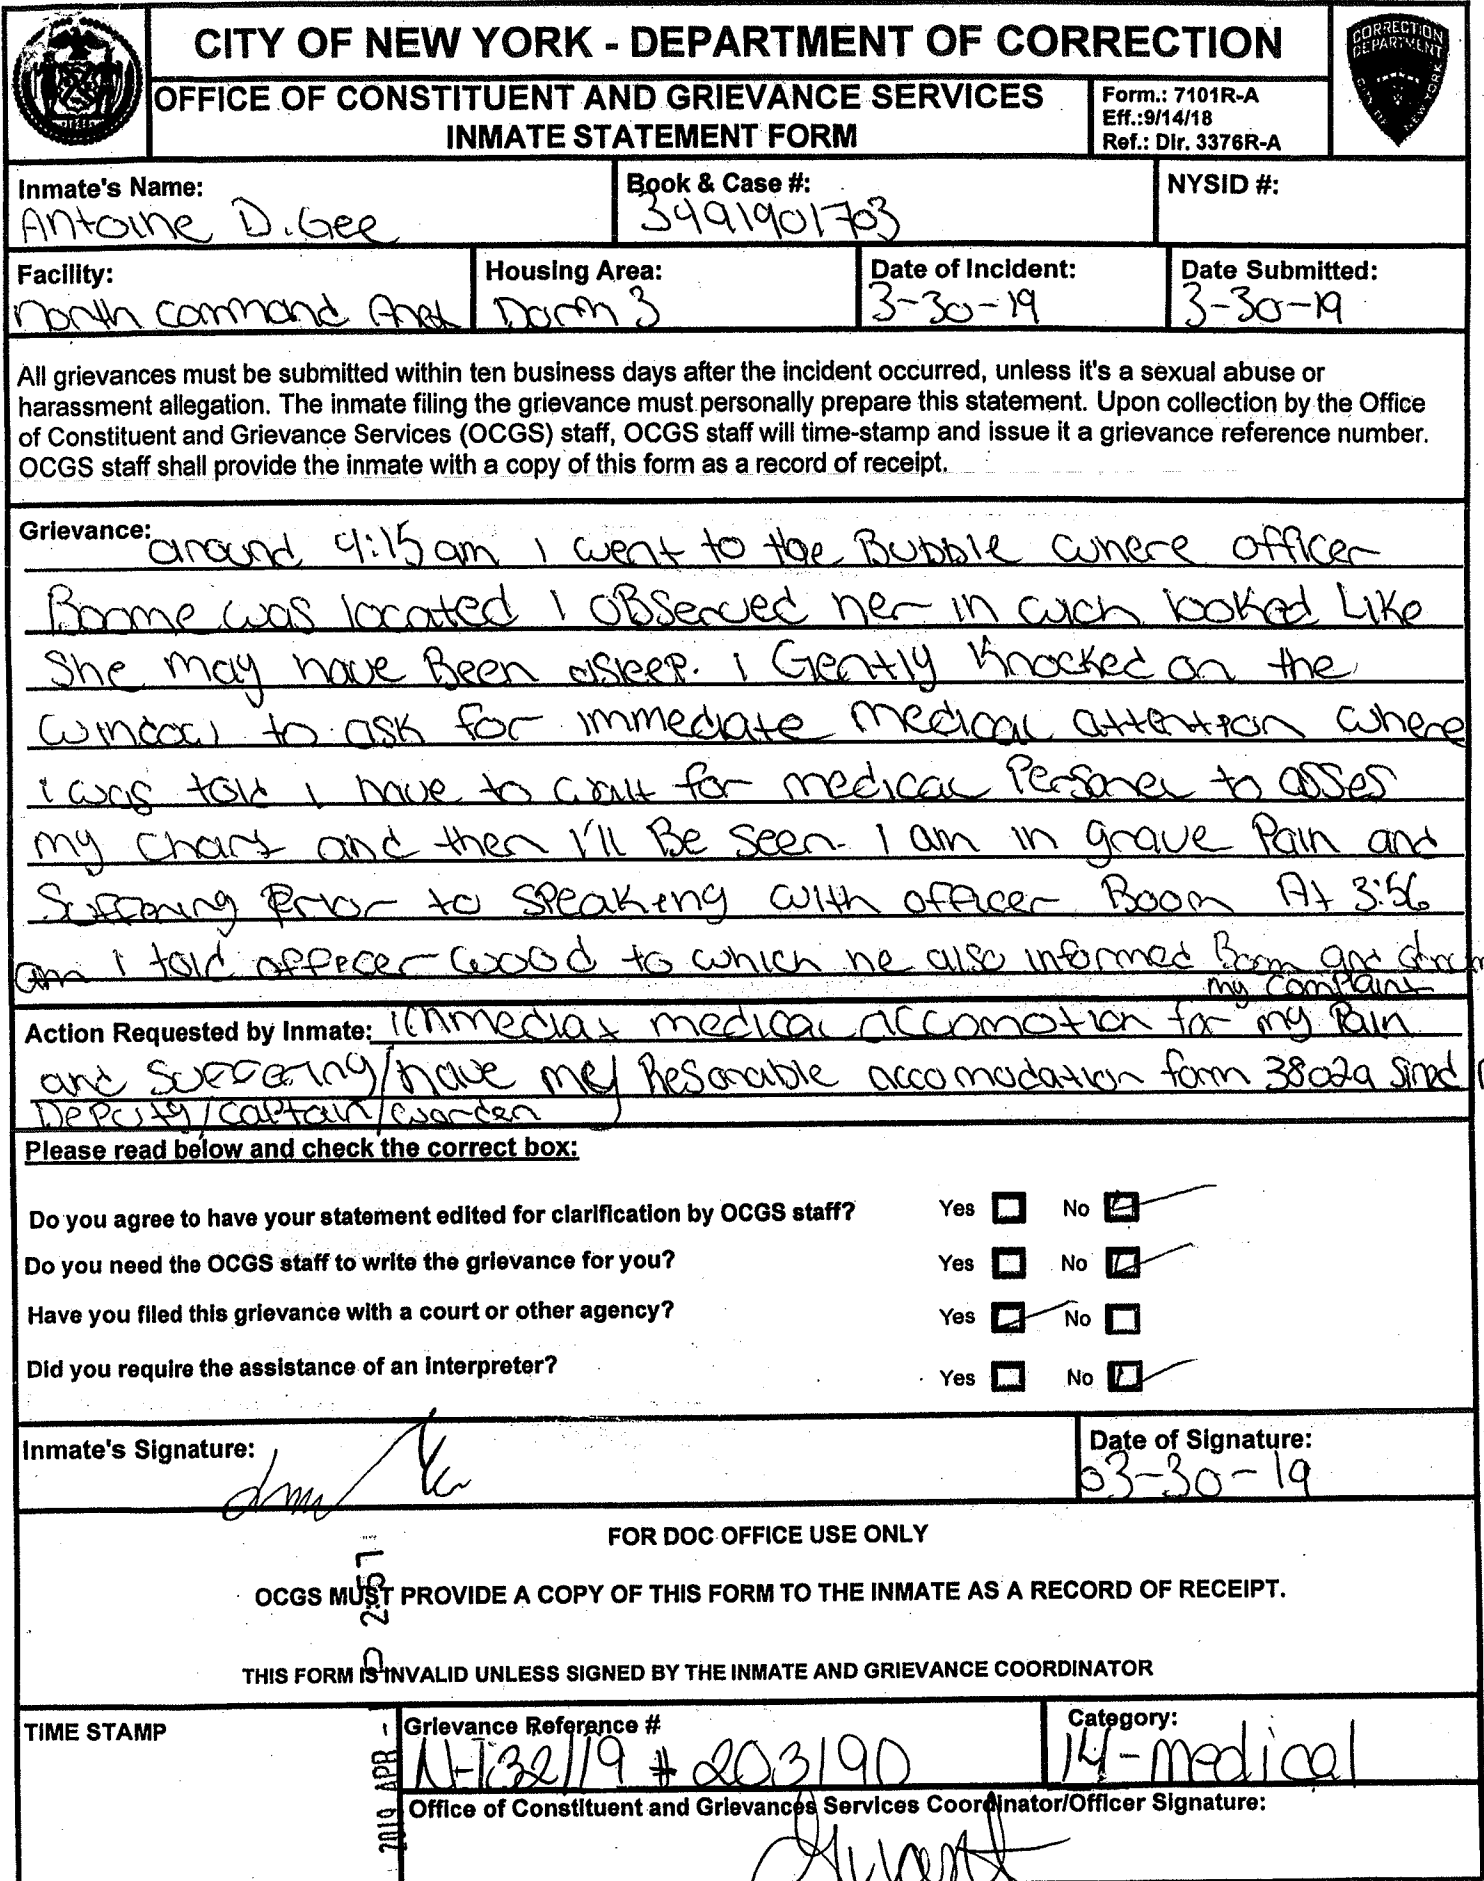 CITY OF NEW YORK - DEPARTMENT OF CORRECTION
CORRECTION
DEPARTMENT
CITY OF NEW YORK
OFFICE OF CONSTITUENT AND GRIEVANCE SERVICES
INMATE STATEMENT FORM
Form.: 7101R-A
Eff.:9/14/18
Ref.: Dir. 3376R-A
Inmate's Name:
Antoine D. Gee
Book & Case #:
3491901703
NYSID #:
Facility:
north command
Housing Area:
Dorm 3
Date of Incident:
3-30-19
Date Submitted:
3-30-19
All grievances must be submitted within ten business days after the incident occurred, unless it's a sexual abuse or
harassment allegation. The inmate filing the grievance must personally prepare this statement. Upon collection by the Office
of Constituent and Grievance Services (OCGS) staff, OCGS staff will time-stamp and issue it a grievance reference number.
OCGS staff shall provide the inmate with a copy of this form as a record of receipt.
Grievance:
around 4:15 am i went to the Bubble where officer
Boome was located I OBServed her in wich looked Like
She may have Been asleep. i Gently Knocked on the
window to ask for immediate medical attention where
i was told i have to wait for medical Personel to asses
my chart and then I'll Be seen. I am in grave Pain and
Suffering Prior to speaking with officer Boom At 3:56
am i told officer wood to which he also informed Boom and
my complaint
Action Requested by Inmate: immediat medical accomotion for my Pain
and Suffering/have my Resonable accomodation form 3802a sined
Deputy/captain/warden
Please read below and check the correct box:
Do you agree to have your statement edited for clarification by OCGS staff? Yes No
Do you need the OCGS staff to write the grievance for you? Yes No
Have you filed this grievance with a court or other agency? Yes No
Did you require the assistance of an interpreter? Yes No
Inmate's Signature:
Date of Signature:
03-30-19
FOR DOC OFFICE USE ONLY
OCGS MUST PROVIDE A COPY OF THIS FORM TO THE INMATE AS A RECORD OF RECEIPT.
THIS FORM IS INVALID UNLESS SIGNED BY THE INMATE AND GRIEVANCE COORDINATOR
TIME STAMP
2019 APR - 1
Grievance Reference #
# 203190
Category:
14-medical
Office of Constituent and Grievances Services Coordinator/Officer Signature: